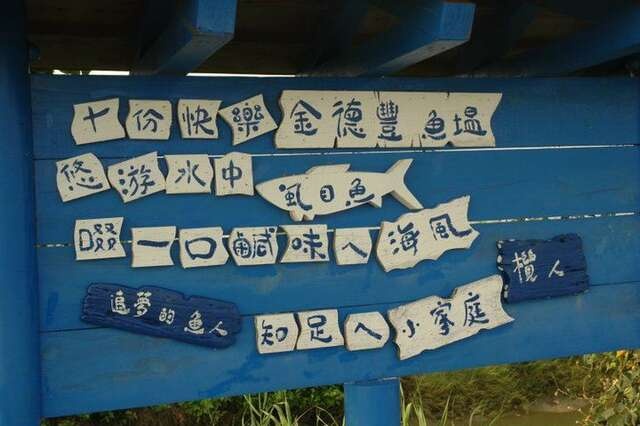 十份快樂 金德豐魚塭
悠游水中 虱目魚
啜一口鹹味ㄟ海風
欖人
追夢的魚人 知足ㄟ小家庭